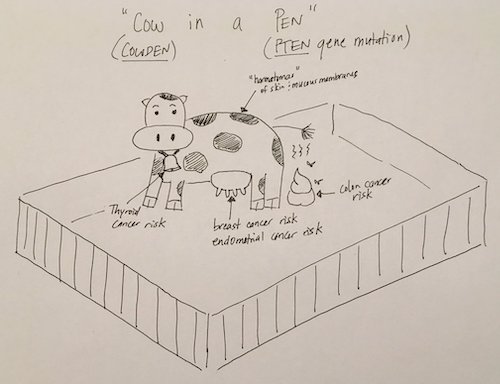 "COW in a PEN"
(COWDEN) (PTEN gene mutation)
"hamartomas"
of skin & mucous membranes
Thyroid
cancer risk
breast cancer risk
endometrial cancer risk
colon cancer
risk